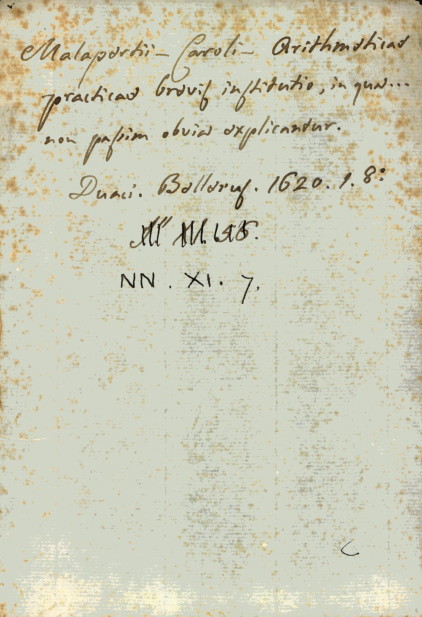 Malapertii – Caroli – Arithmeticae
practicae brevis institutio, in qua...
non passim obvia explicantur.
Duaci. Bellerus. 1620. 1. 8:
NN. XI. 7.
C